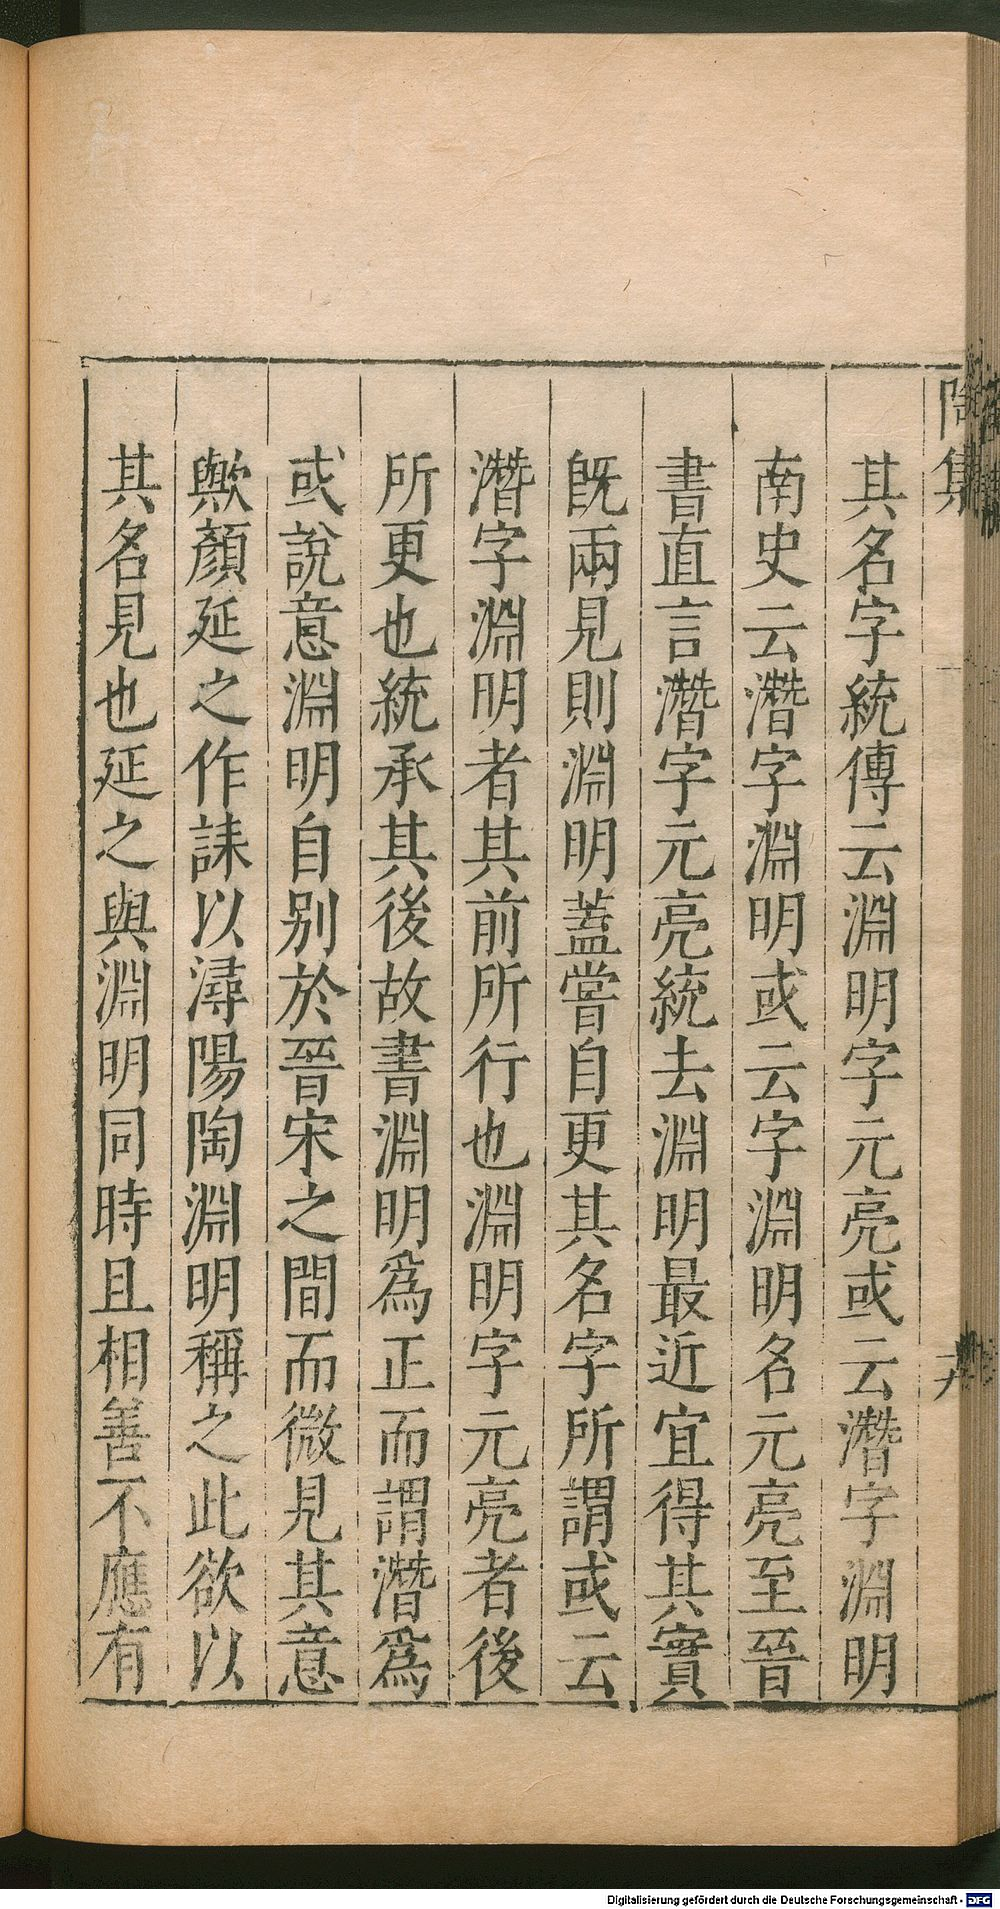 陶集
其名字統傳云淵明字元亮或云潛字淵明
南史云潛字淵明或云字淵明名元亮至晉
書直言潛字元亮統去淵明最近宜得其實
旣兩見則淵明蓋嘗自更其名字所謂或云
潛字淵明者其前所行也淵明字元亮者後
所更也統承其後故書淵明爲正而謂潛爲
或說意淵明自别於晉宋之間而微見其意
歟顏延之作誄以潯陽陶淵明稱之此欲以
其名見也延之與淵明同時且相善不應有
Digitalisierung gefördert durch die Deutsche Forschungsgemeinschaft - DFG